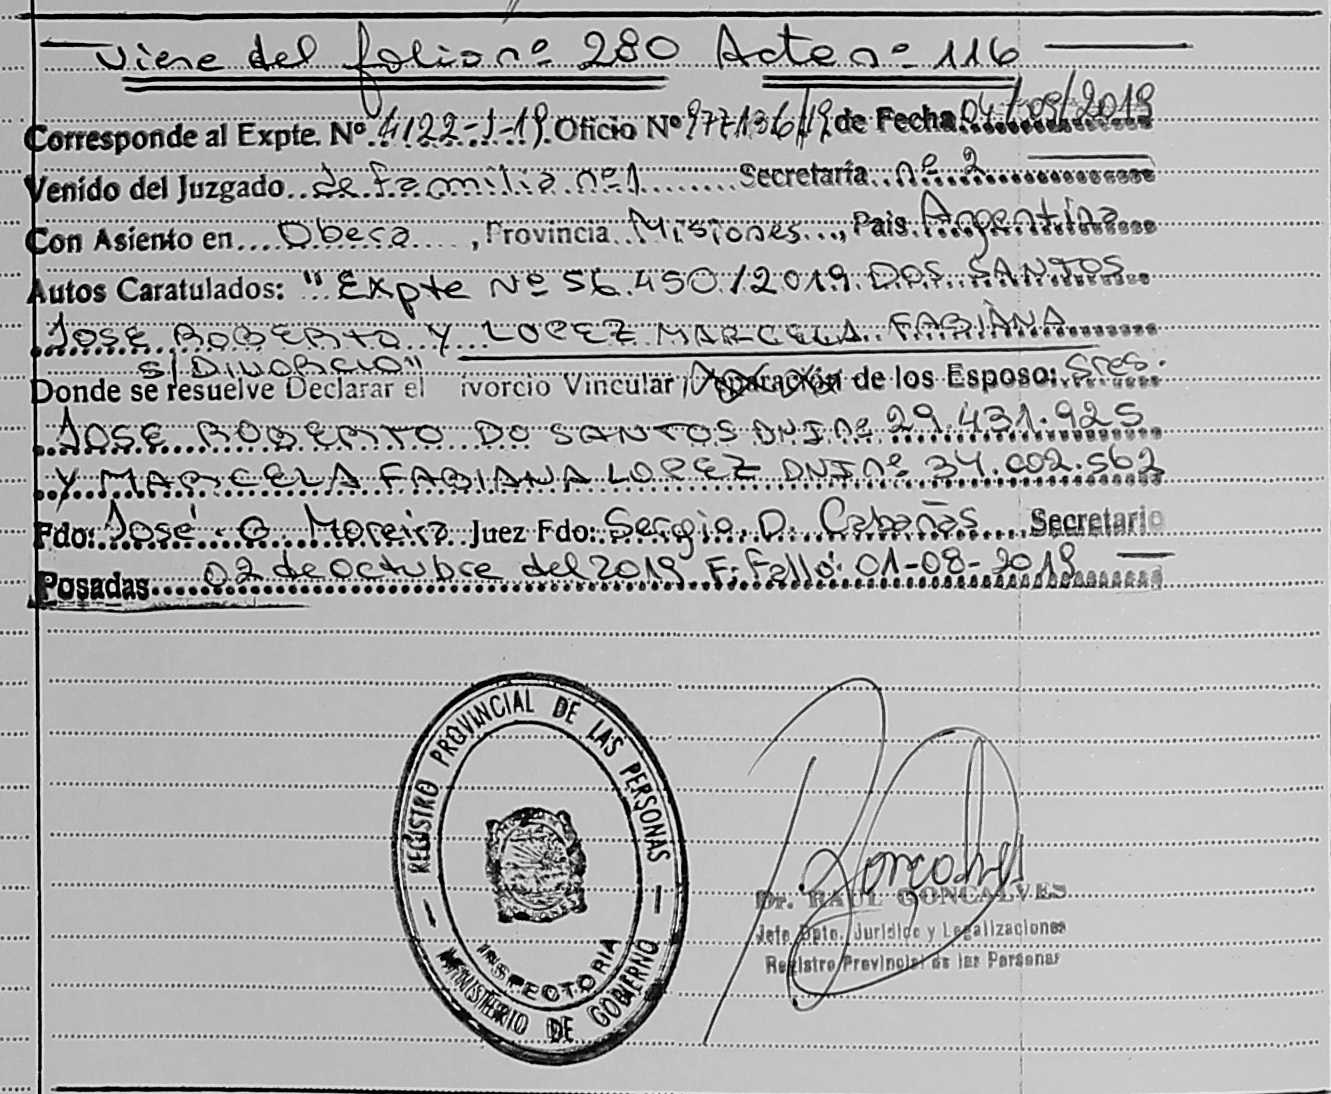 Viene del folio nº 280 Acta nº 116
Corresponde al Expte. Nº 4122-J-19. Oficio Nº 977136/19 de Fecha 04/09/2019
Venido del Juzgado de familia nº1 Secretaría nº 2
Con Asiento en Obera, Provincia Misiones, Pais Argentina
Autos Caratulados: "Expte Nº 56.450/2019 DOS SANTOS
JOSE ROBERTO Y LOPEZ MARCELA FABIANA
S/DIVORCIO"
Donde se resuelve Declarar el ivorcio Vincular / Separación de los Esposo: Sres.
JOSE ROBERTO DO SANTOS DNI nº 29.431.925
Y MARCELA FABIANA LOPEZ DNI nº 34.002.562
Fdo: José G Moreira Juez Fdo: Sergio D. Cabañas Secretario
Posadas 02 de octubre del 2019 F. Falló: 01-08-2019
REGISTRO PROVINCIAL DE LAS PERSONAS
INSPECTORIA
MINISTERIO DE GOBIERNO
Dr. RAUL GONCALVES
Jefe Dpto. Jurídico y Legalizaciones
Registro Provincial de las Personas